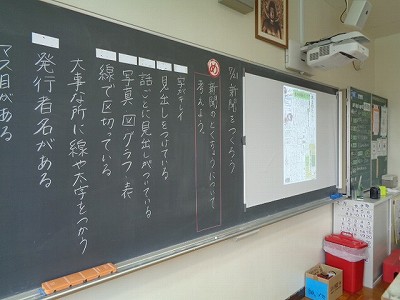 7/21 新聞をつくろう
め 新聞のとくちょうについて
考えよう。
字がキレイ
見出しをつけている
詰ごとに見出しがついている
写真 図 グラフ 表
線で区切っている
大事な所に線や太字をつかう
発行者名がある
マス目がある